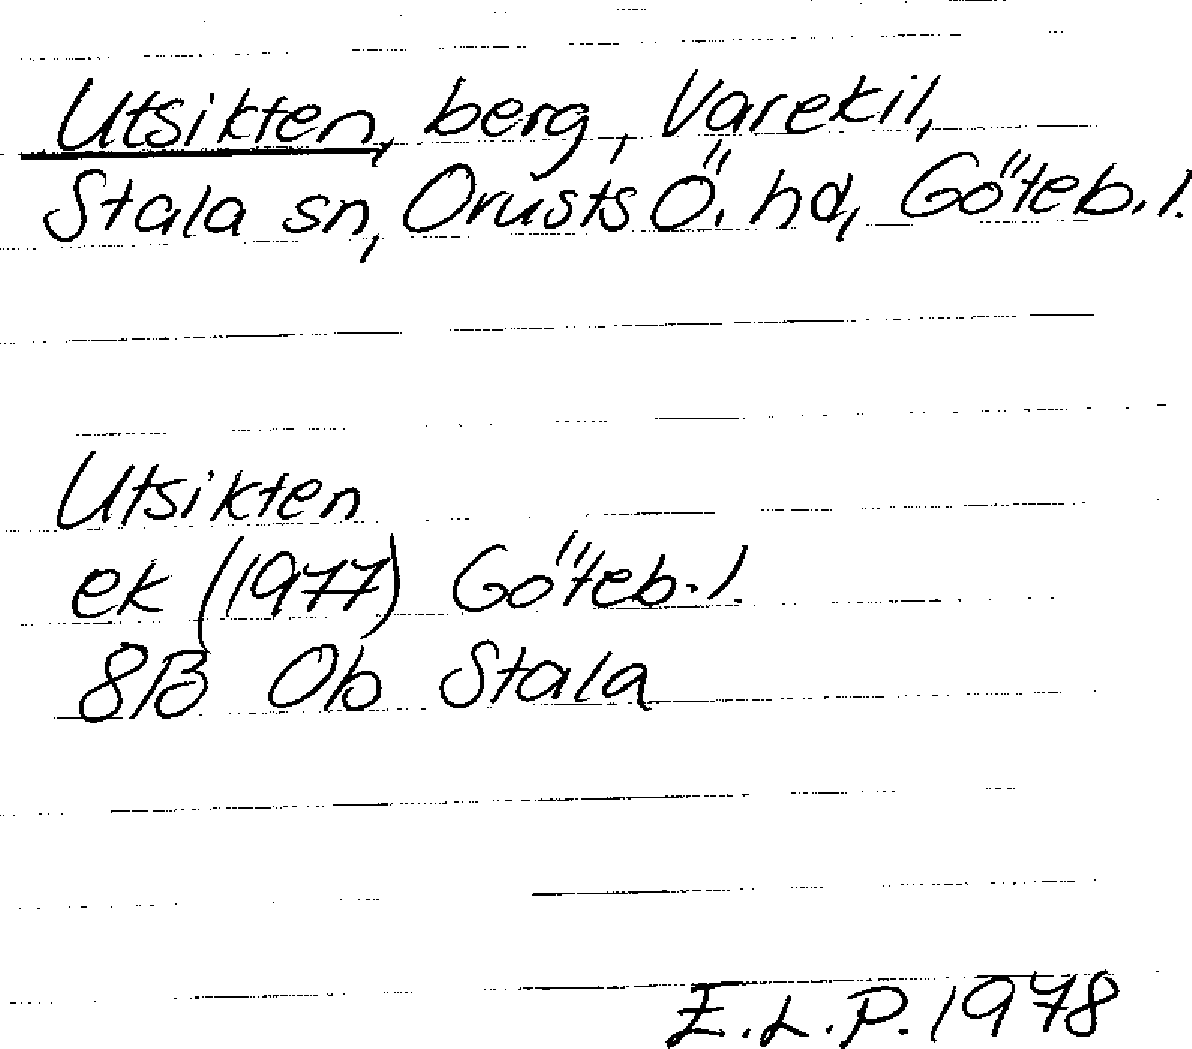 Utsikten, berg, Varekil,
Stala sn, Orusts Ö. hd, Göteb. l.
Utsikten
ek (1977) Göteb. l.
8B 0b Stala
E.L.P. 1978